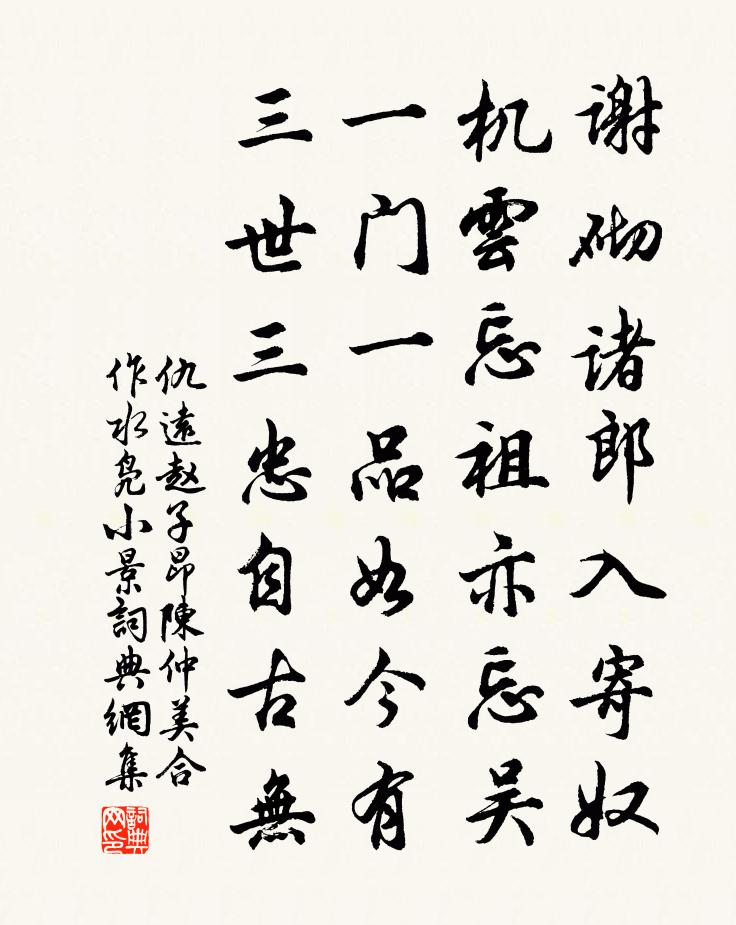 谢砌诸郎入寄奴
机雲忘祖亦忘吴
一门一品如今有
三世三忠自古無
仇遠赵子昂陳仲美合
作水凫小景詞典網集
詞典网印